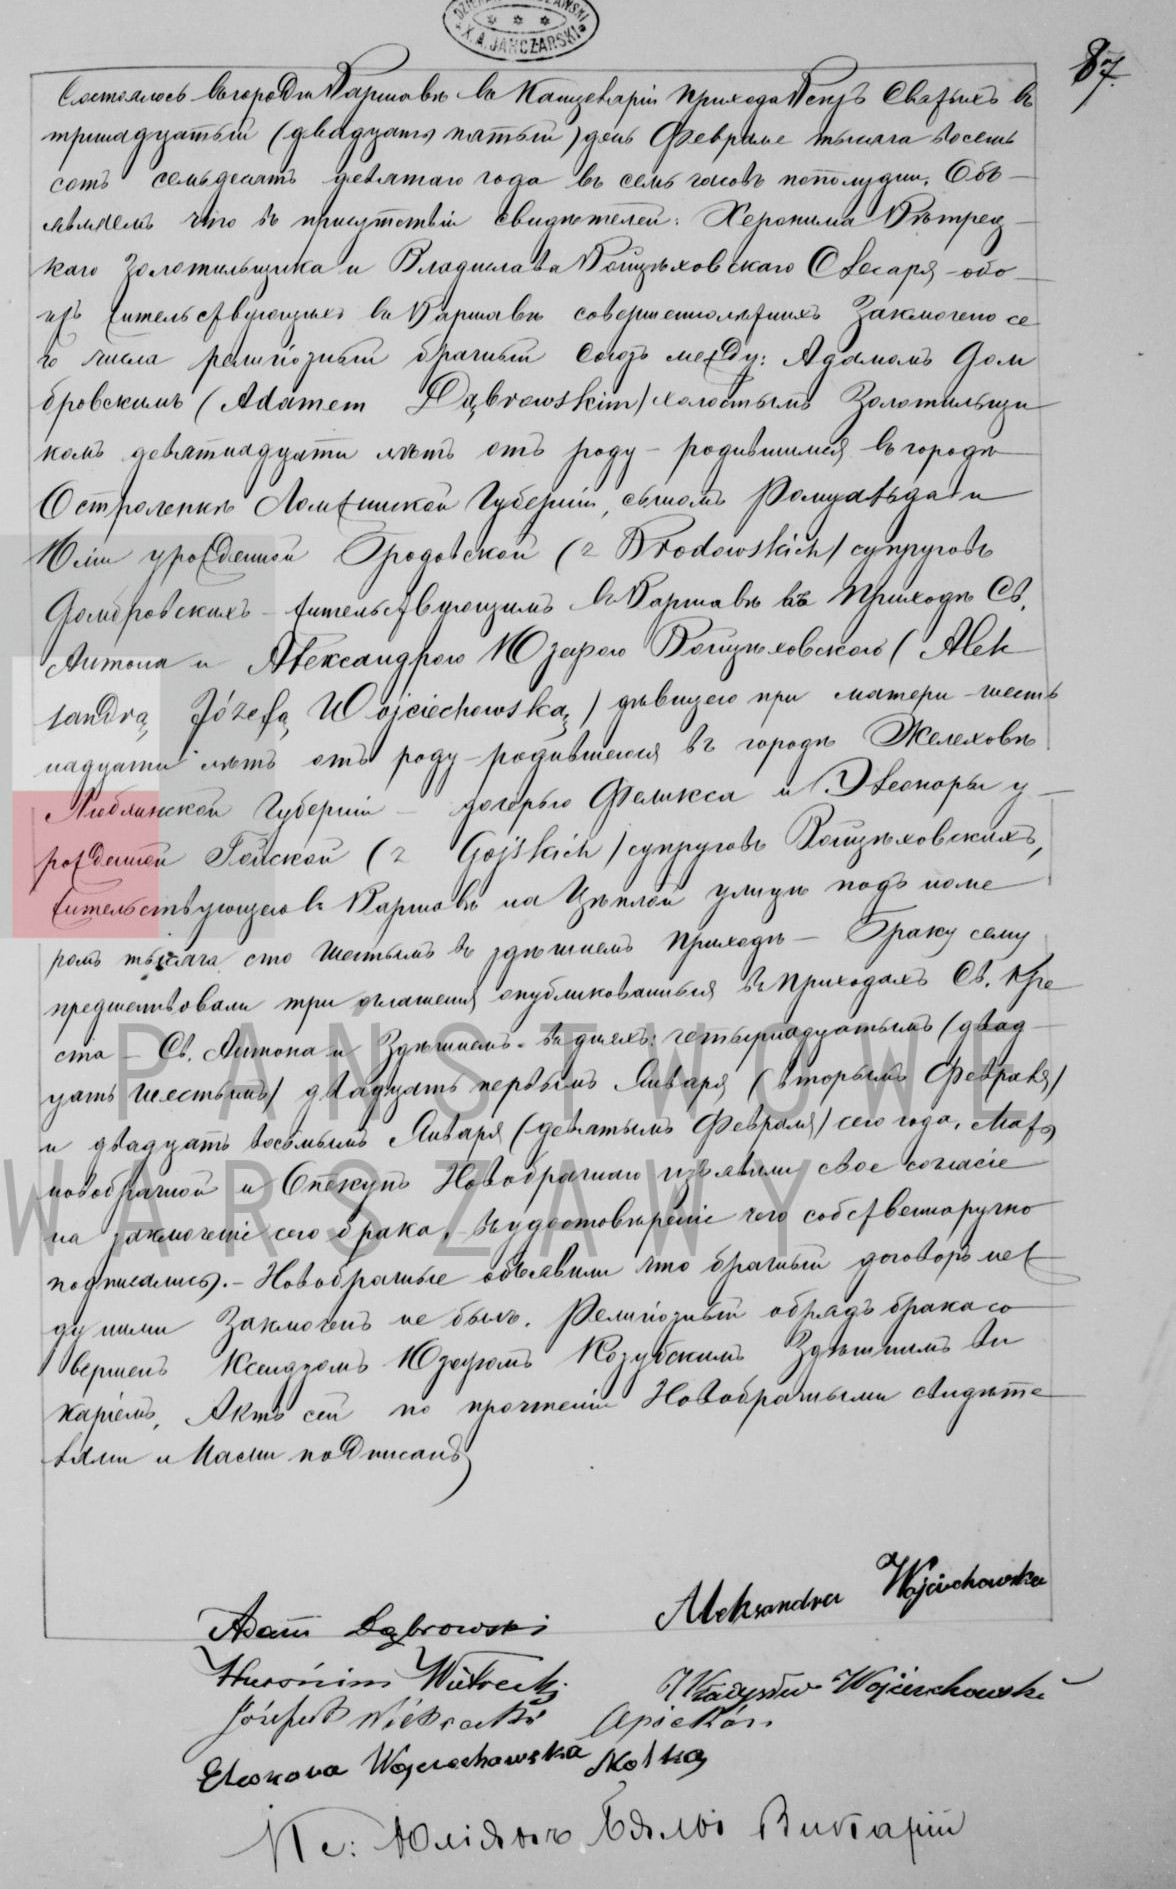 DZIEKAN WARSZAWSKI
X. A. JANCZARSKI
87.
Состоялось въ городѣ Варшавѣ въ Канцеляріи Прихода Всѣхъ Святыхъ въ
тринадцатый (двадцать пятый) день Февраля тысяча восемь
сотъ семьдесятъ девятаго года въ семь часовъ пополудни. Объ-
являемъ что въ присутствіи свидѣтелей: Херонима Вѣтрец-
каго Золотильщика и Владислава Войцѣховскаго Слесаря - обо-
ихъ жительствующихъ въ Варшавѣ совершеннолѣтнихъ Заключено се-
го числа религіозный брачный союзъ между: Адамомъ Дом
бровскимъ (Adamem Dąbrowskim) холостымъ Золотильщи
комъ девятнадцати лѣтъ отъ роду - родившимся въ городѣ
Остроленкѣ Ломжинской Губерніи, сыномъ Ромуальда и
Юліи урожденной Бродовской (z Brodowskich) супруговъ
Домбровскихъ - жительствующимъ въ Варшавѣ въ Приходѣ Св.
Антона и Александрою Юзефою Войцѣховскою (Alek
sandrą Józefą Wojciechowską) дѣвицею при матери шест
надцати лѣтъ отъ роду - родившеюся въ городѣ Желеховѣ
Люблинской Губерніи - дочерью Феликса и Элеоноры у-
рожденной Гойской (z Gojskich) супруговъ Войцѣховскихъ,
жительствующею въ Варшавѣ на Цѣплой улицѣ подъ номе
ромъ тысяча сто шестымъ въ здѣшнемъ приходѣ - Браку сему
предшествовали три оглашенія опубликованныя въ Приходахъ Св. Кре
ста - Св. Антона и Здѣшнемъ - въ дняхъ: четырнадцатымъ (двад-
цать шестымъ) двадцать первымъ Января (вторымъ Февраля)
и двадцать восьмымъ Января (девятымъ Февраля) сего года. Мать
новобрачной и Опекунъ Новобрачнаго изъявили свое согласіе
на заключеніе сего брака, въ удостовѣреніе чего собственноручно
подписались. - Новобрачные объявили что брачный договоръ меж
ду ними Заключенъ не былъ. Религіозный обрядъ брака со
вершенъ Ксендзомъ Юзефомъ Козубскимъ Здѣшнимъ Ви
каріемъ, Актъ сей по прочтеніи Новобрачными свидѣте
лями и Нами подписанъ
PAŃSTWOWE
WARSZAWY
Adam Dąbrowski Aleksandra Wojciechowska
Hieronim Wietrecki Władysław Wojciechowski
Józefat Wietrecki Opiekun
Eleonora Wojciechowska Matka
Кс: Юліянъ Бялы Викарій